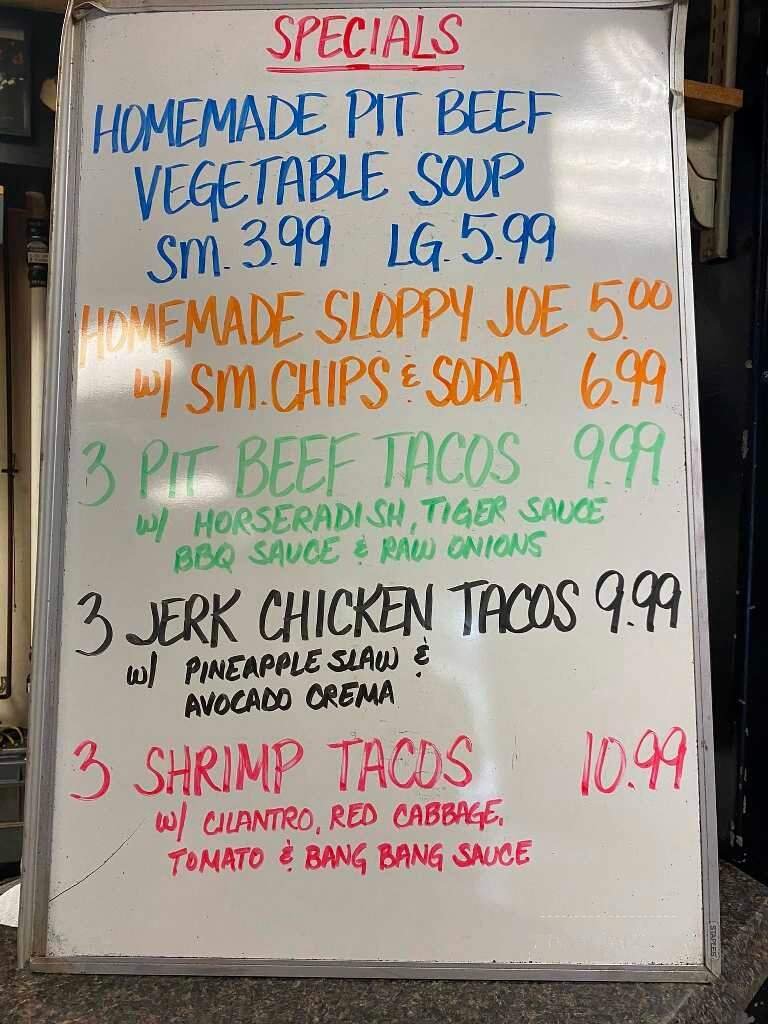 SPECIALS
HOMEMADE PIT BEEF
VEGETABLE SOUP
SM. 3.99 LG. 5.99
HOMEMADE SLOPPY JOE 5.00
W/ SM. CHIPS & SODA 6.99
3 PIT BEEF TACOS 9.99
W/ HORSERADISH, TIGER SAUCE
BBQ SAUCE & RAW ONIONS
3 JERK CHICKEN TACOS 9.99
W/ PINEAPPLE SLAW &
AVOCADO CREMA
3 SHRIMP TACOS 10.99
W/ CILANTRO, RED CABBAGE,
TOMATO & BANG BANG SAUCE
STAPLES